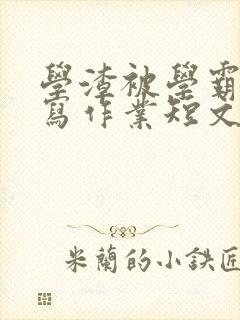 學渣被學霸
寫作業短文
米蘭的小鉄匠